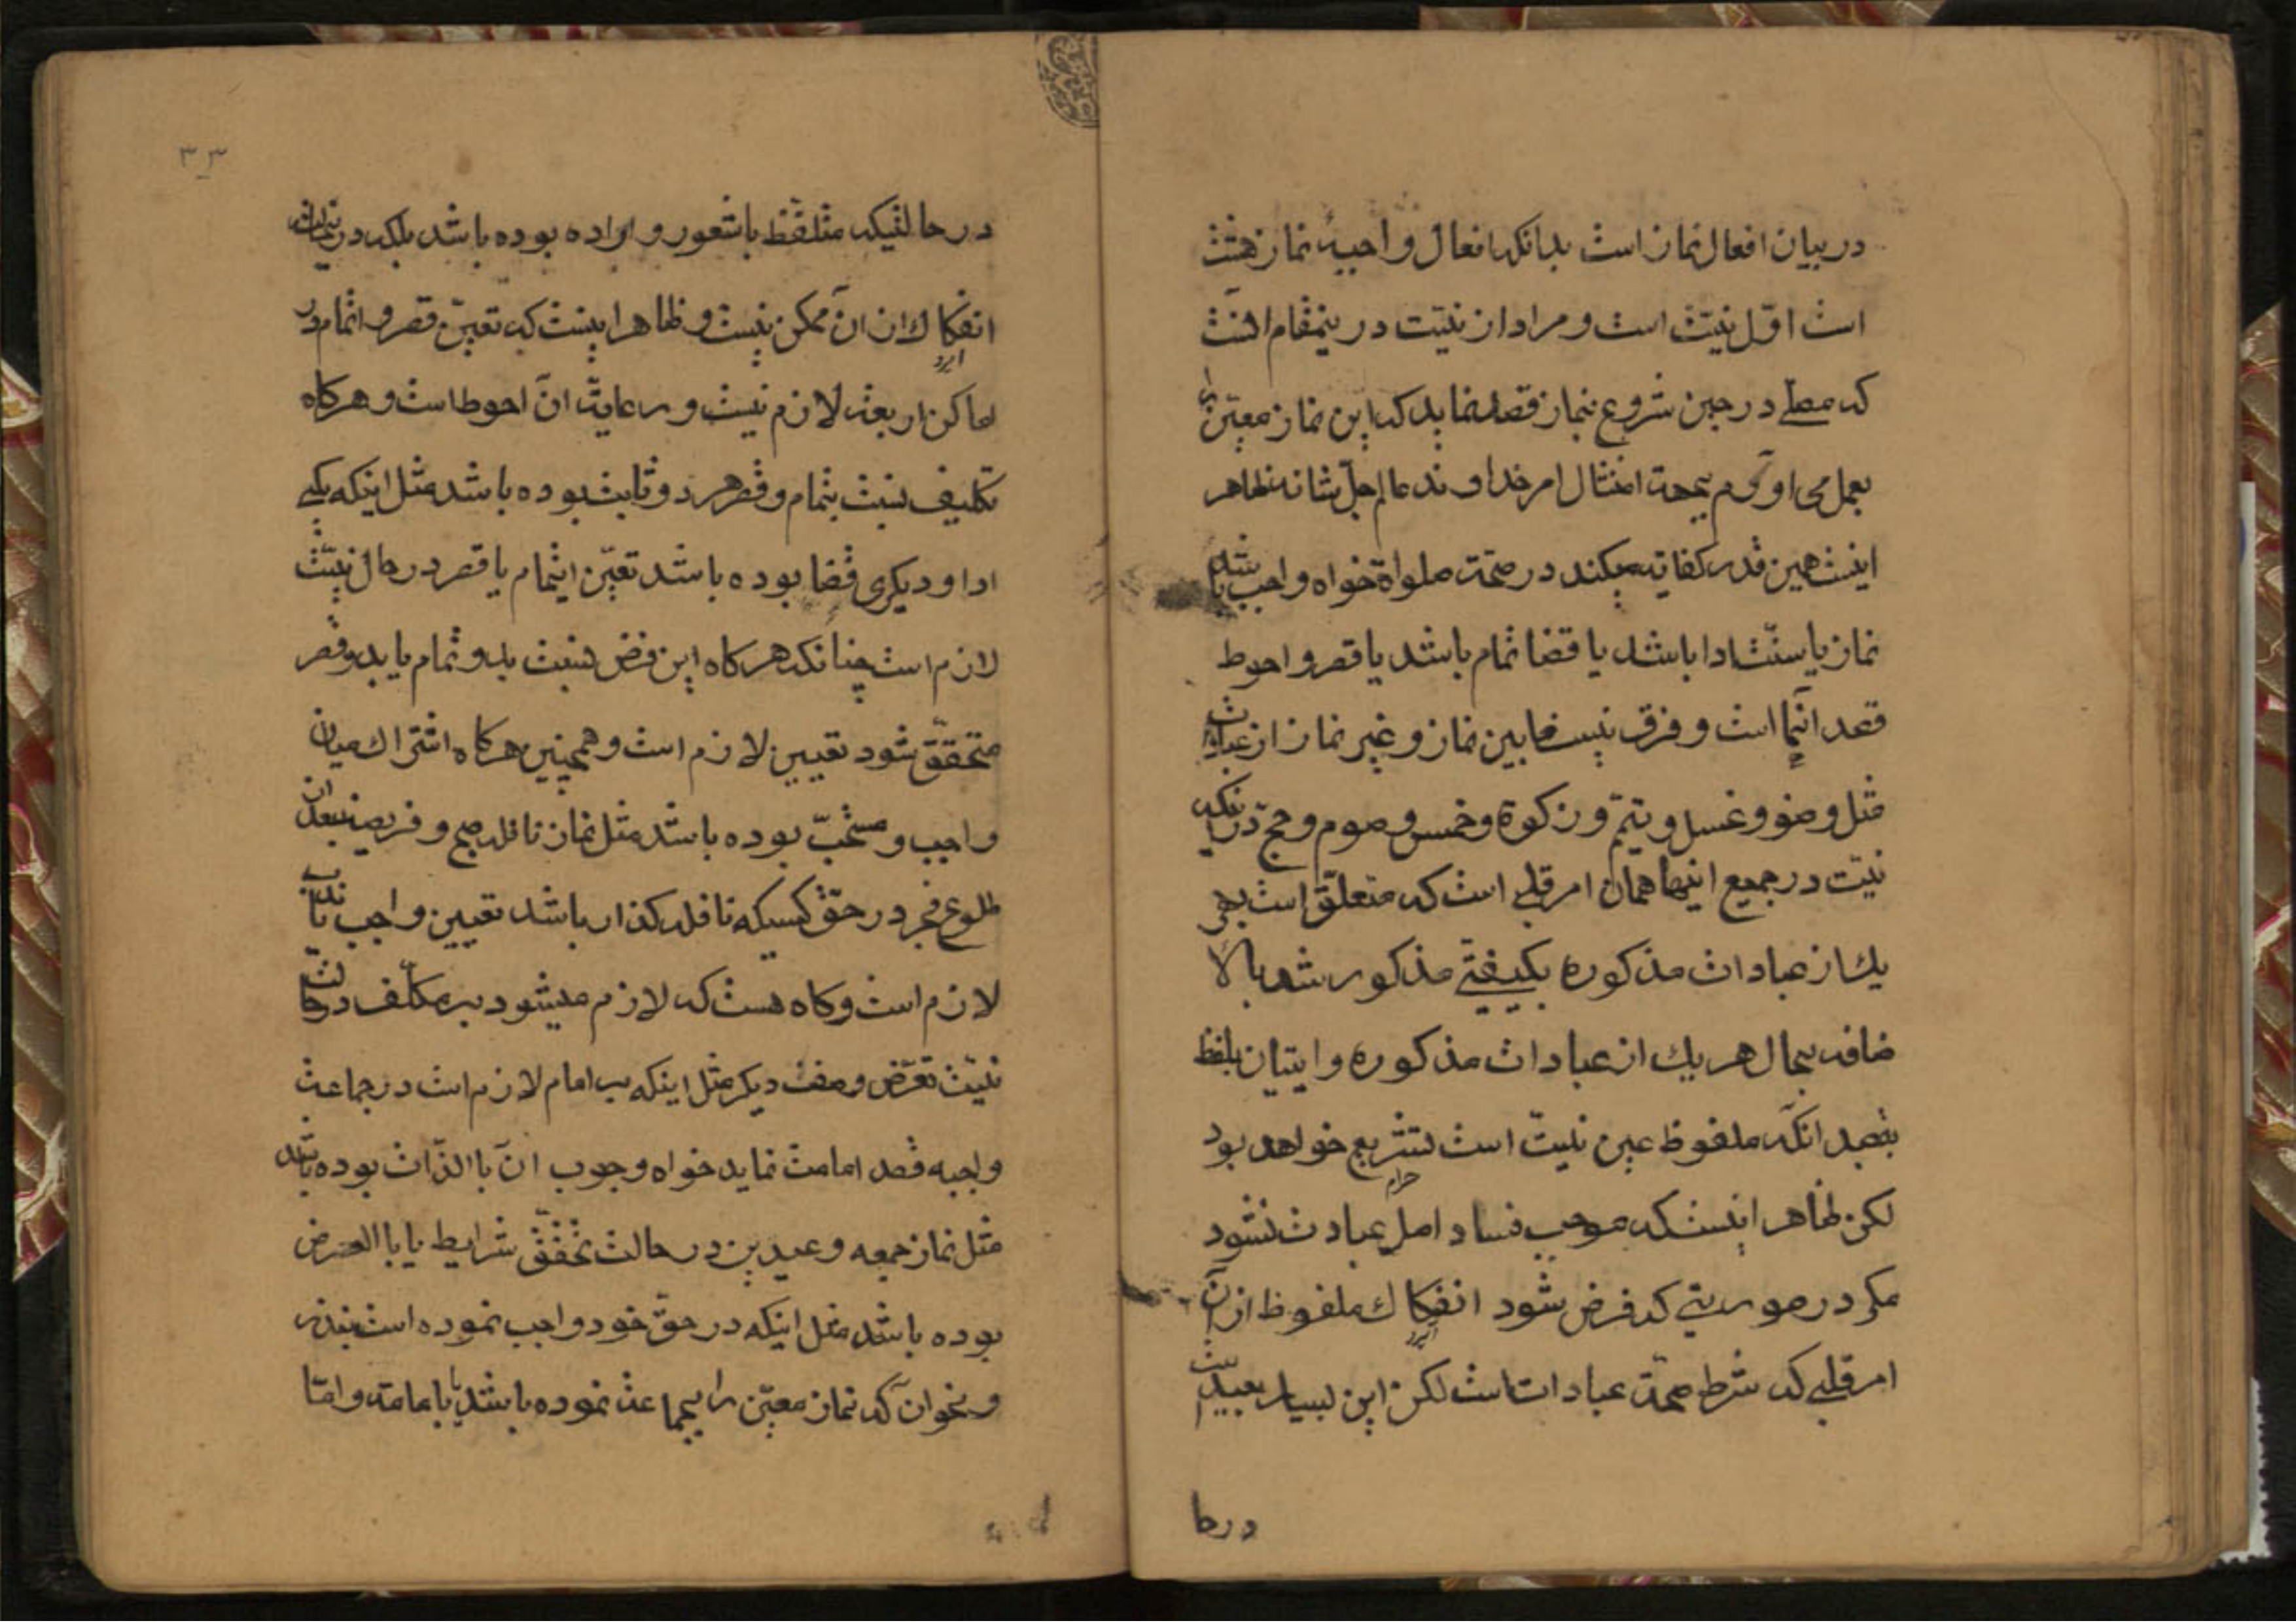 در بیان افعال نماز است بدانکه افعال واجبهٔ نماز هشت
است اوّل نیّت است و مراد از نیّت در ینمقام انست
که مصلے در حین شروع بنماز قصد نماید که این نماز معیّن را
بعمل می اورم بجهة امتثال امر خداوند عالم جلّ شانه ظاهر
اینست همین قدر کفایه میکند در صحّة صلواة خواه واجب باشد
نماز یا سنّت ادا باشد یا قضا تمام باشد یا قصر و احوط
قصد انها است و فرق نیست مابین نماز و غیر نماز از عبادات
مثل وضو و غسل و تیمّم و زکوة و خمس و صوم و حج در اینکه
نیّت در جمیع اینها همان امر قلبے است که متعلّق است بهر
یك از عبادات مذکوره بکیفیّتے مذکور شد بالا
ضافه بحال هریك از عبادات مذکوره و ایتیان بلفظ
بقصد انکه ملفوظ عین نیّت است تشریع خواهد بود
حرام
لکن ظاهر اینست که موجب فساد اصل عبادت نشود
مکر در صورتیے که فرض شود انفکاك ملفوظ از آن
امر قلبے که شرط صحّة عبادات است لکن این بسیار بعید است
در حا
۳۳
در حالتیکه متلفّظ باشعور و اراده بوده باشد بلکه در
انفکاك ان ان ممکن نیست و ظاهر اینست که تعیّن قصر و اتمام در
اماکن اربعه لازم نیست و رعایة ان احوط است و هرکاه
تکلیف نسبت بتمام و قصر هر دو ثابت بوده باشد مثل اینکه یکے
ادا و دیکری قضا بوده باشد تعیّن اتمام یا قصر در حال نیّت
لازم است چنانکه هرکاه این فرض نسبت بدو تمام یا بدو قصر
متحقّق شود تعیین لازم است و همچنین هرکاه اشتراك میان
واجب و مستحبّ بوده باشد مثل نماز نافله صبح و فریضه بعد از
طلوع فجر در حقّ کسیکه نافله کذار باشد تعیین واجب یا ندب
لازم است و کاه هست که لازم میشود بر مکلّف در حالت
نیّت تعرّض وصف دیکر مثل اینکه بر امام لازم است در جماعت
واجبه قصد امامت نماید خواه وجوب ان با الذّات بوده باشد
مثل نماز جمعه و عیدین در حالت تحقّق شرایط یا با العرض
بوده باشد مثل اینکه در حقّ خود واجب نموده است بنذر
و نحو ان که نماز معیّن را بجماعت نموده باشد یا با مامة و امّا